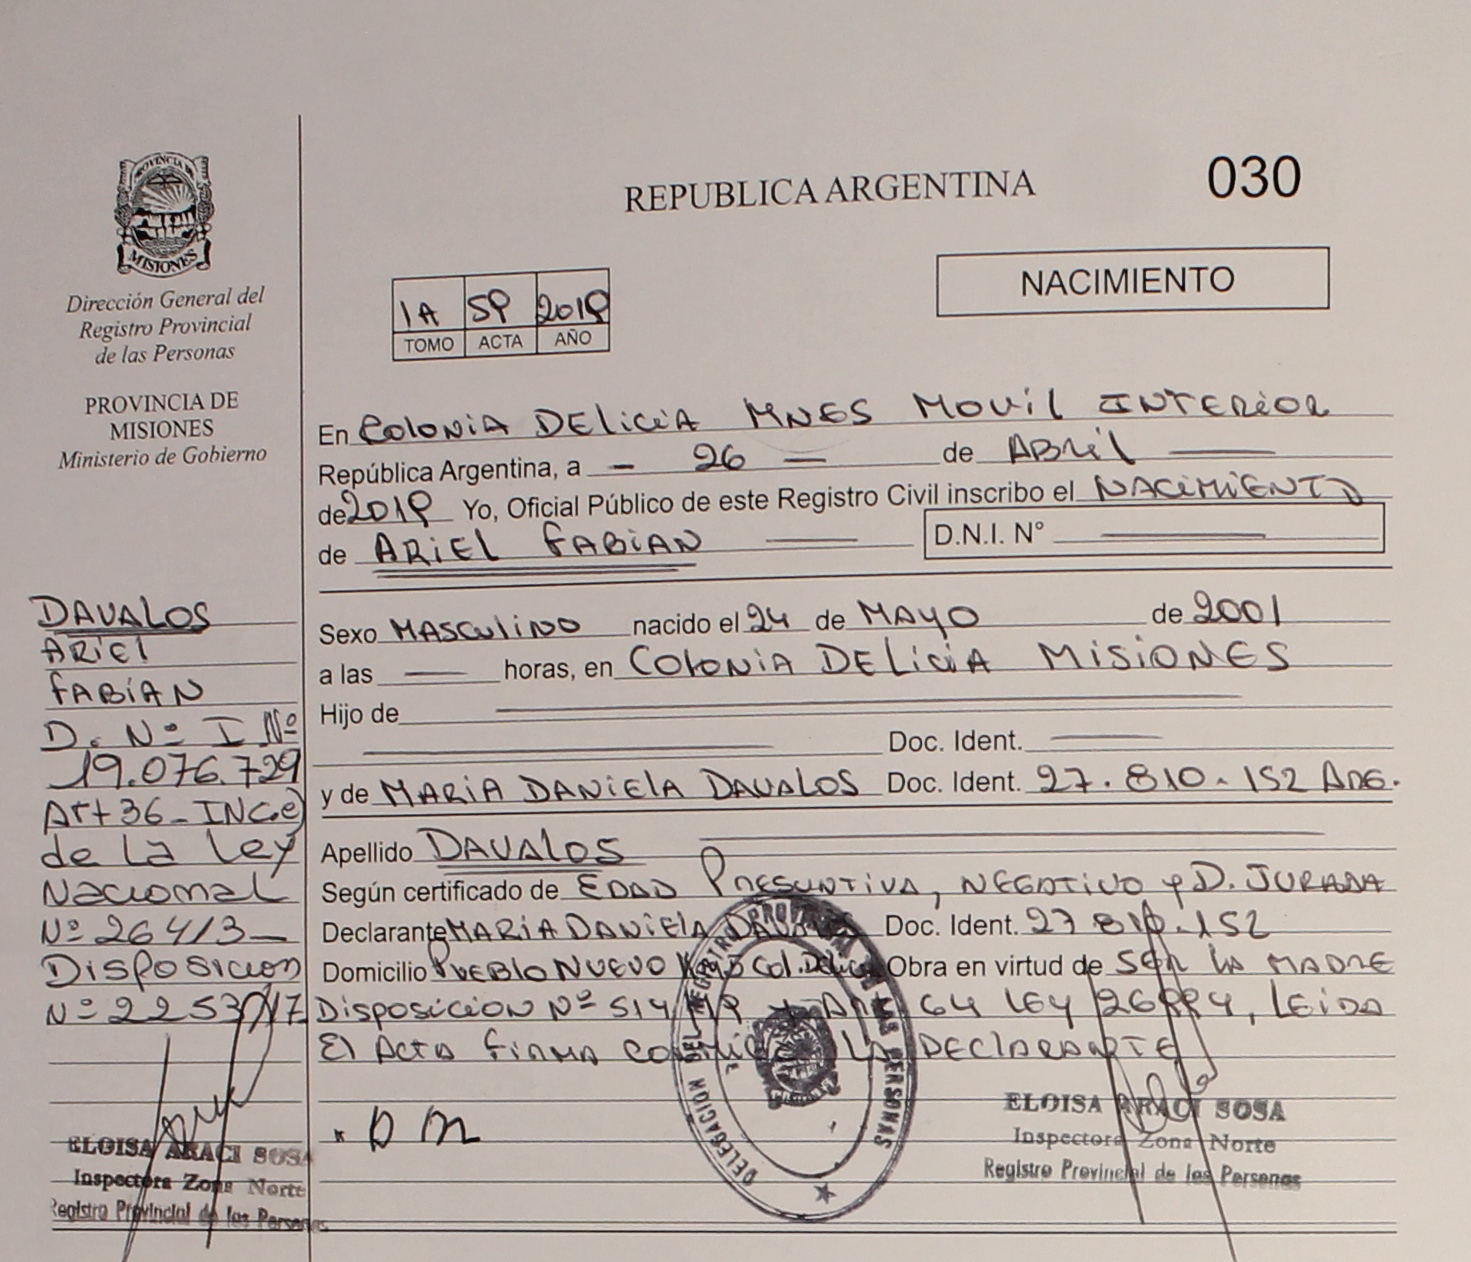 PROVINCIA DE
MISIONES
Dirección General del
Registro Provincial
de las Personas
PROVINCIA DE
MISIONES
Ministerio de Gobierno
REPUBLICA ARGENTINA
030
NACIMIENTO
1A 59 2019
TOMO ACTA AÑO
En COLONIA DELICIA MNES MOVIL INTERIOR
República Argentina, a - 26 - de ABRIL
de 2019 Yo, Oficial Público de este Registro Civil inscribo el NACIMIENTO
de ARIEL FABIAN D.N.I. N°
Sexo MASCULINO nacido el 24 de MAYO de 2001
a las — horas, en COLONIA DELICIA MISIONES
Hijo de
Doc. Ident.
y de MARIA DANIELA DAVALOS Doc. Ident. 27.810.152 ARG.
Apellido DAVALOS
Según certificado de EDAD PRESUNTIVA, NEGATIVO y D. JURADA
Declarante MARIA DANIELA DAVALOS Doc. Ident. 27 810.152
Domicilio PUEBLO NUEVO Col. Delicia Obra en virtud de SER LA MADRE
Disposicion Nº 514/19 64 LEY 26994, LEIDA
El Acta firma LA DECLARANTE
DAVALOS
ARIEL
FABIAN
D. Nº I Nº
19.076.729
Art 36 - INC.e)
de la Ley
Nacional
Nº 26413-
Disposicion
Nº 2253/17
ELOISA ARACI SOSA
Inspectora Zona Norte
Registro Provincial de las Personas
D M
DELEGACION DEL REGISTRO PROVINCIAL DE LAS PERSONAS
ELOISA ARACI SOSA
Inspectora Zona Norte
Registro Provincial de las Personas